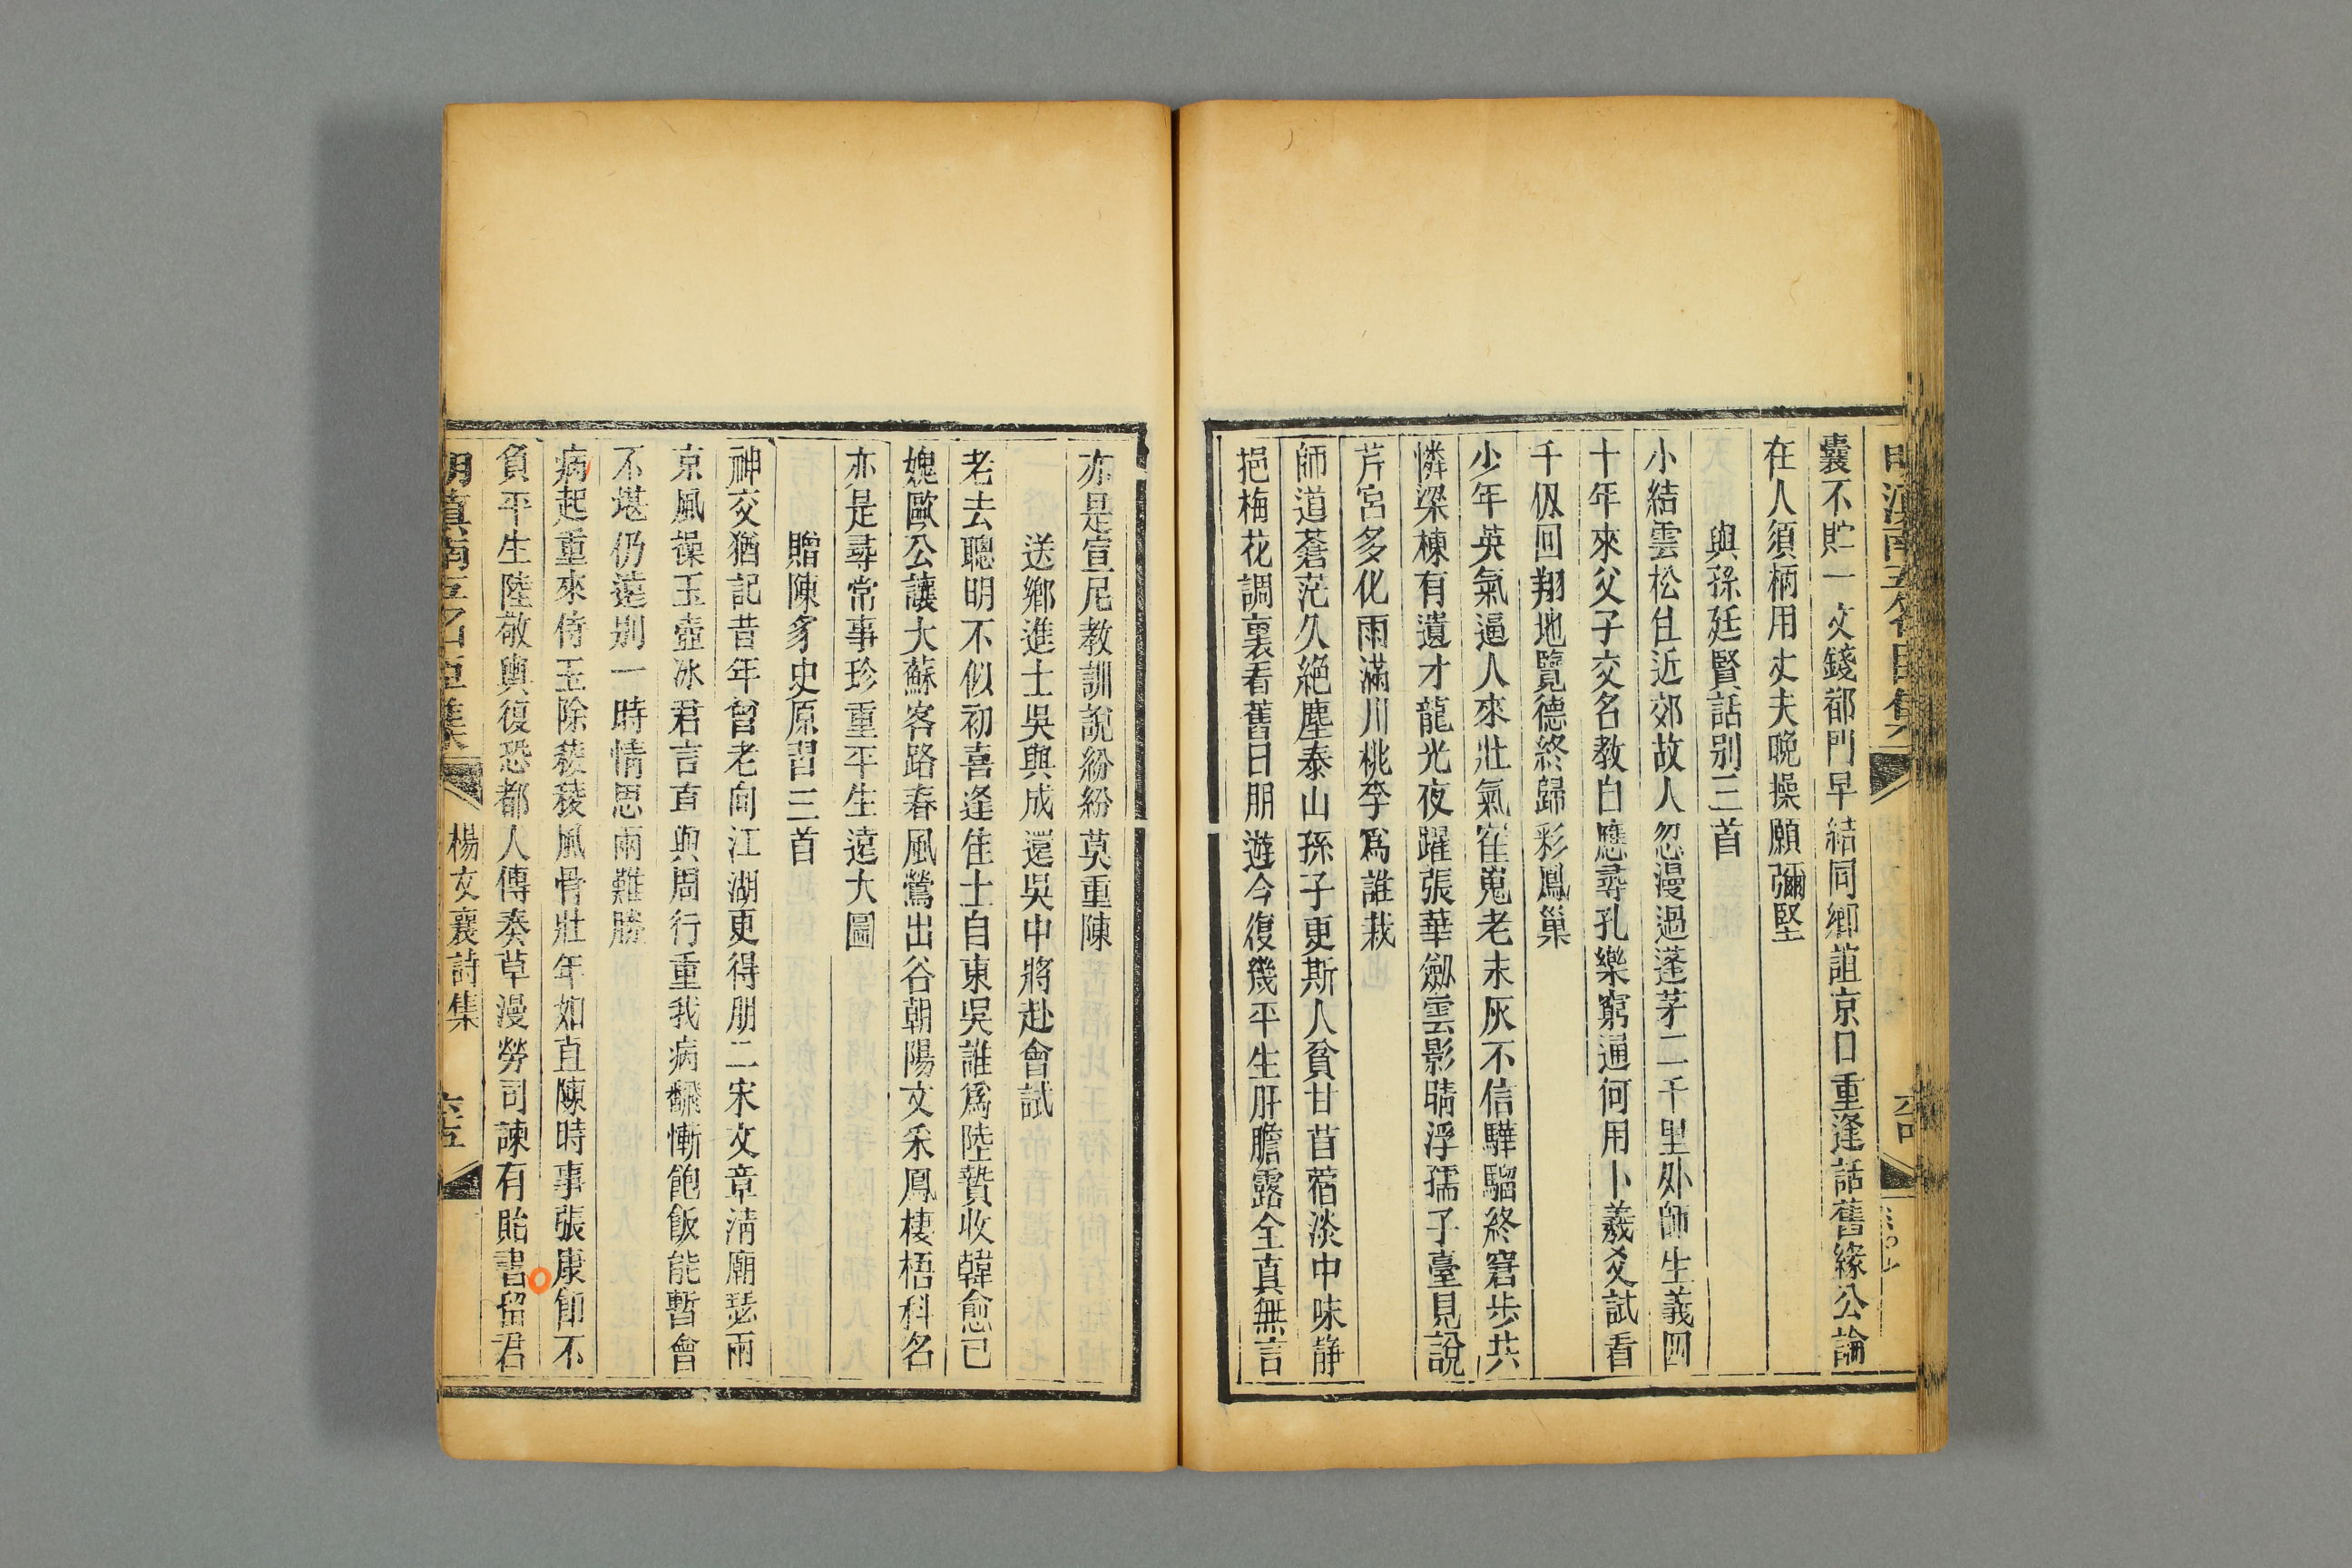 囊不貯一文錢都門早結同鄉誼京口重逢話舊緣公論
在人須柄用丈夫晩操願彌堅
與孫廷賢話别三首
小結雲松住近郊故人忽漫過蓬茅二千里外師生義四
十年來父子交名教自應尋孔樂窮通何用卜羲爻試看
千仭回翔地覽德終歸彩鳳巢
少年英氣逼人來壯氣崔嵬老未灰不信驊騮終窘步共
憐梁棟有遺才龍光夜躍張華劒雲影晴浮孺子臺見說
芹宮多化雨滿川桃李爲誰栽
師道蒼茫久絶塵泰山孫子更斯人貧甘苜蓿淡中味靜
挹梅花調裏看舊日朋遊今復幾平生肝膽露全真無言
亦是宣尼教訓說紛紛莫重陳
送鄉進士吳與成還吳中將赴會試
老去聰明不似初喜逢佳士自東吳誰爲陸贄收韓愈已
媿歐公讓大蘇客路春風鶯出谷朝陽文采鳳棲梧科名
亦是尋常事珍重平生遠大圖
贈陳豸史原習三首
神交猶記昔年曾老向江湖更得朋二宋文章淸廟瑟兩
京風操玉壺冰君言直與周行重我病飜慚飽飯能暫會
不堪仍遠别一時情思兩難勝
病起重來倚玉除稜稜風骨壯年如直陳時事張康節不
負平生陸敬輿復恐都人傳奏草漫勞司諫有貽書留君
楊文襄詩集